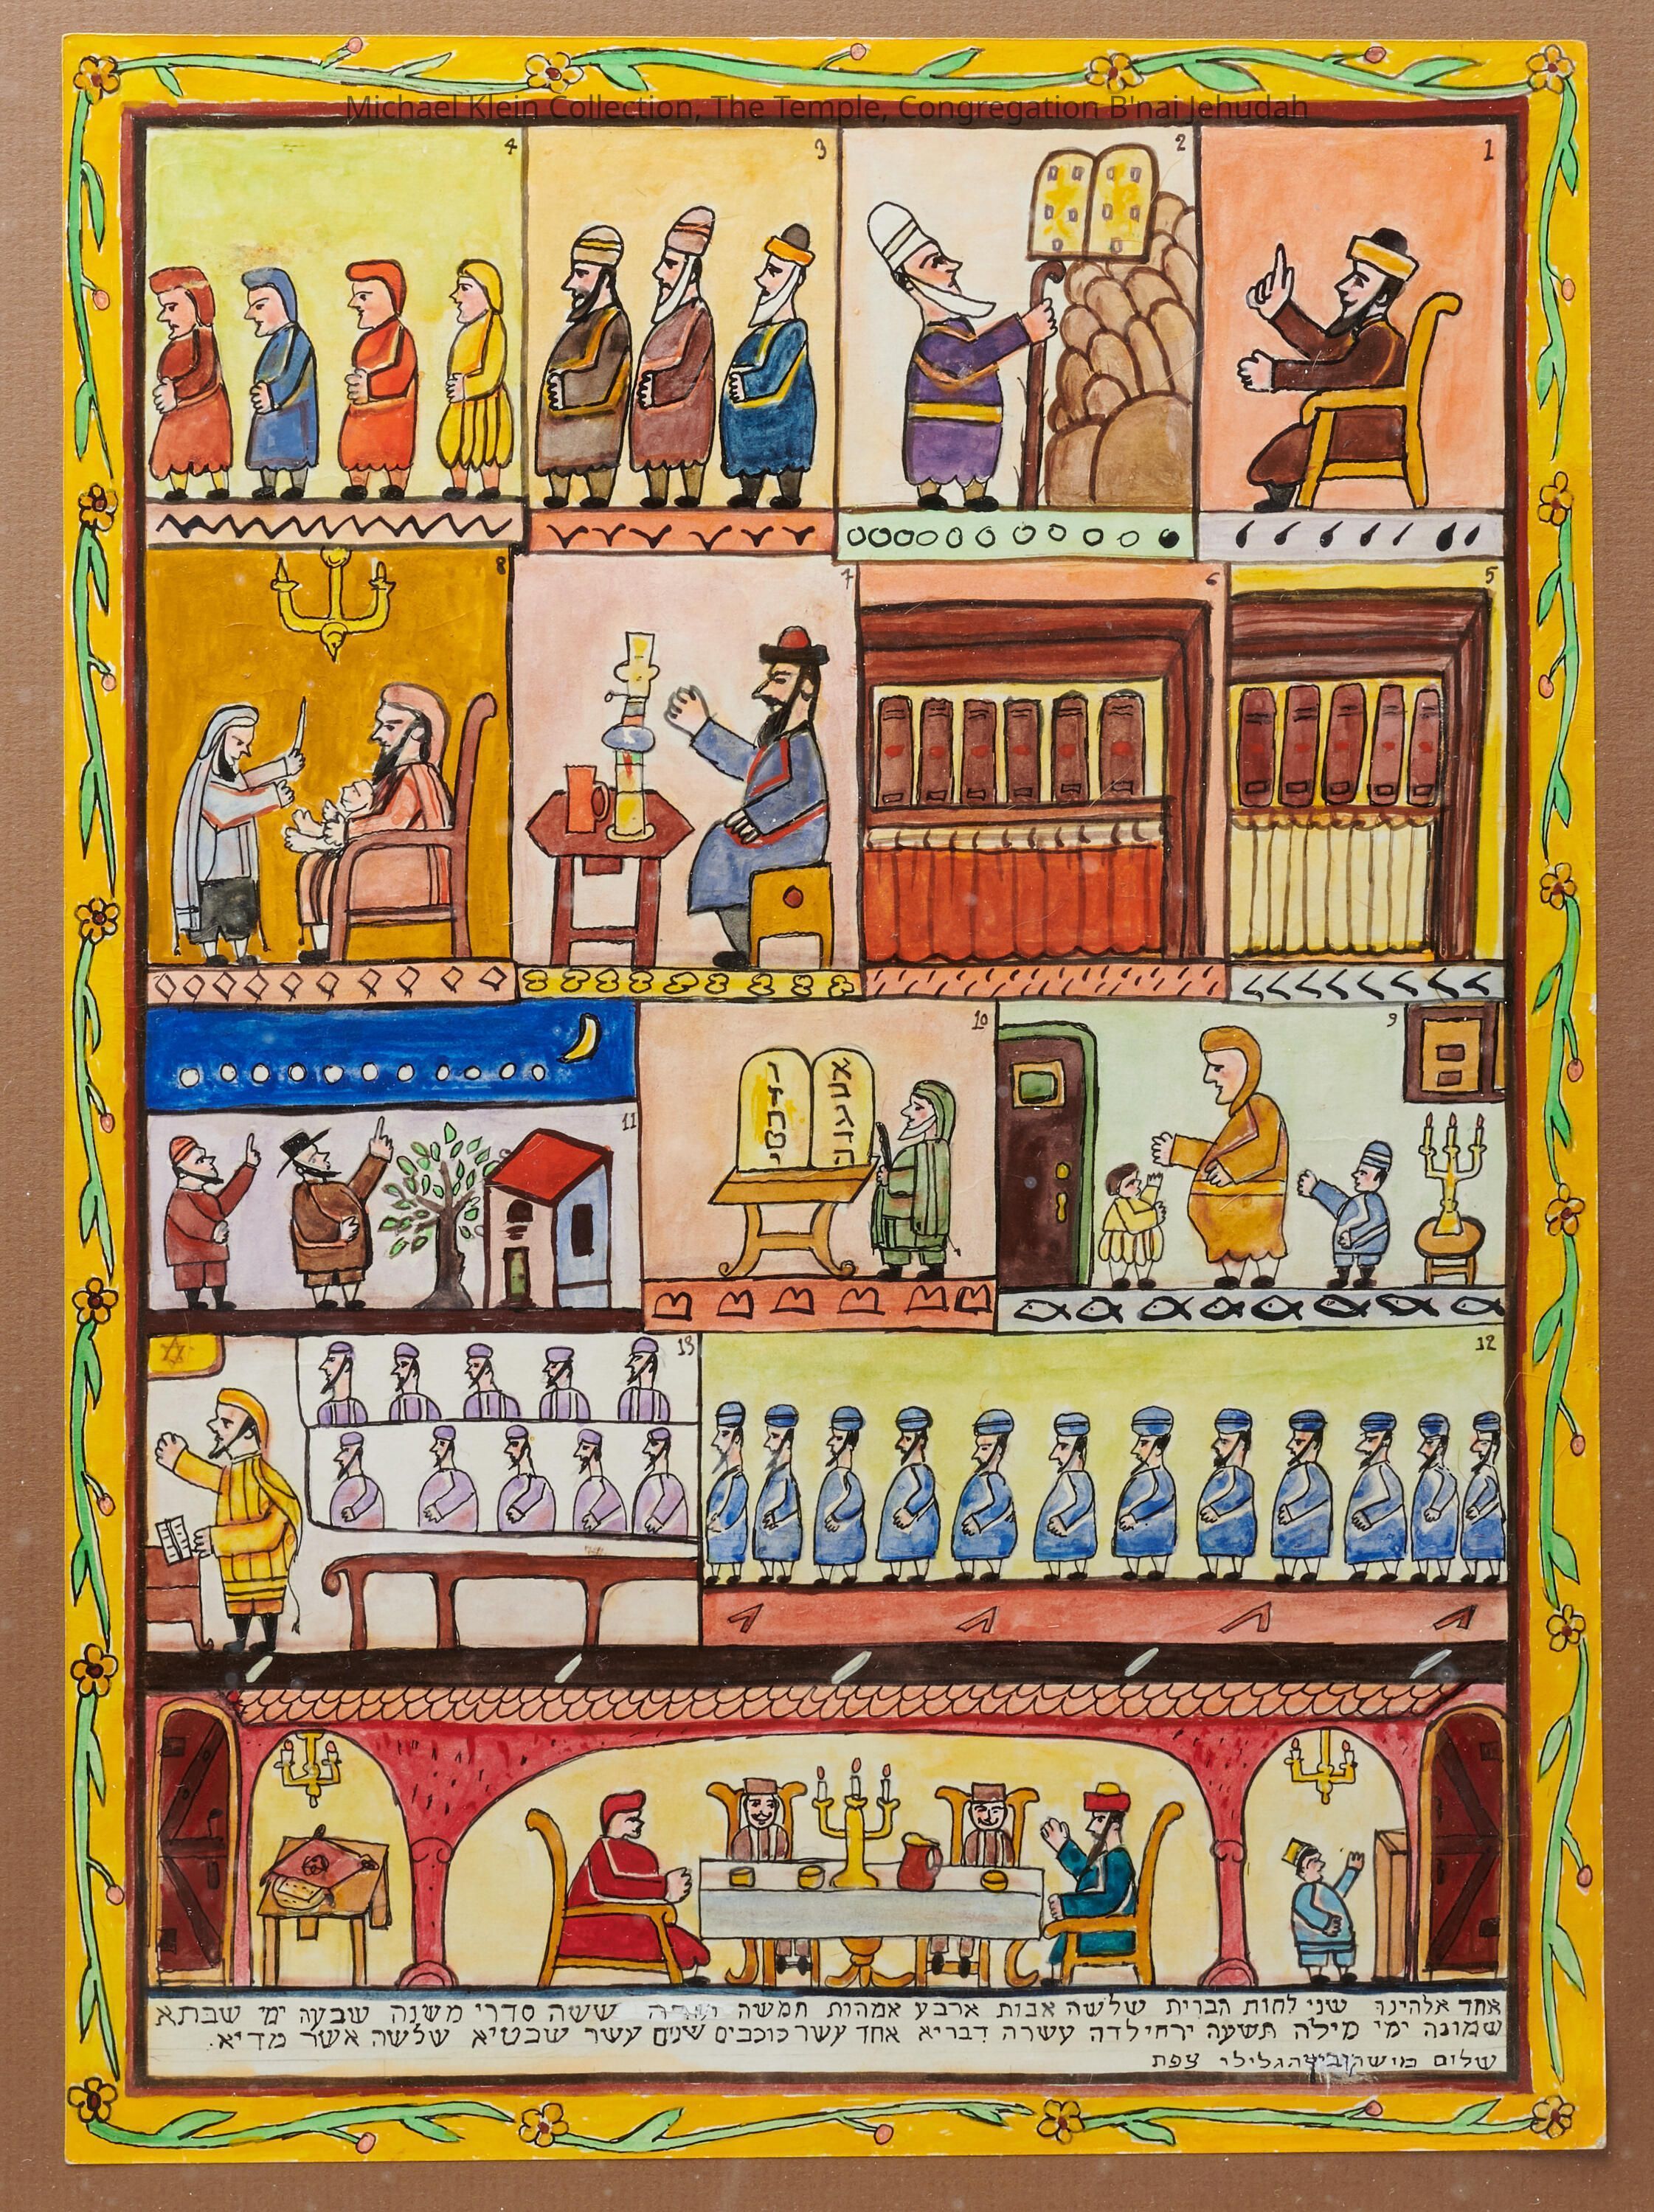 Michael Klein Collection, The Temple, Congregation B'nai Jehudah
4 3 2 1
8 7 6 5
10 9
11
13 12
אחד אלהינו שני לחות הברית שלשה אבות ארבע אמהות חמשה ששה סדרי משנה שבעה ימי שבתא
שמונה ימי מילה תשעה ירחי לדה עשרה דבריא אחד עשר כוכבים שנים עשר שבטיא שלשה אשר מדיא.
שלום הגלילי צפת